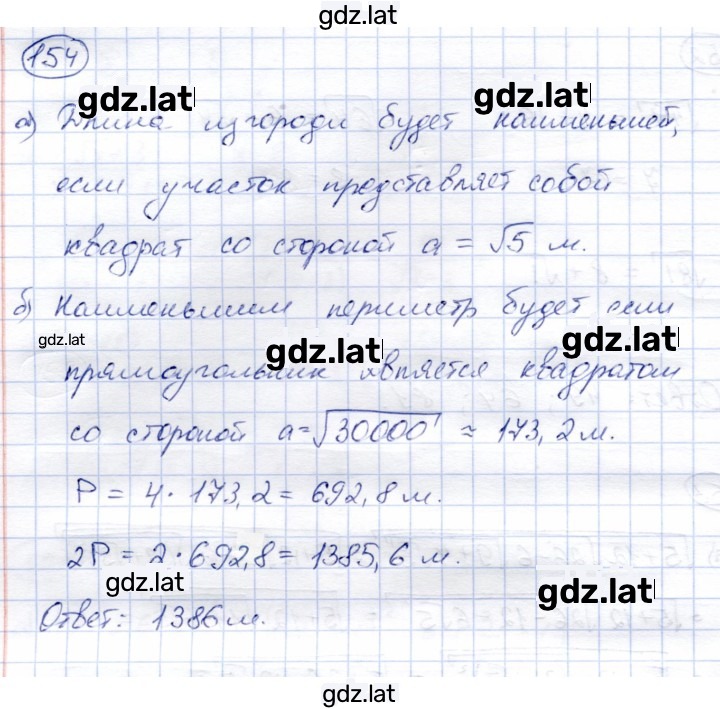 gdz.lat
154
gdz.lat
gdz.lat
а) Длина изгороди будет наименьшей,
если участок представляет собой
квадрат со стороной a = √S м.
б) Наименьшим периметр будет если
gdz.lat
gdz.lat
gdz.lat
прямоугольник является квадратом
со стороной a = √30000 ≈ 173,2 м.
P = 4 · 173,2 = 692,8 м.
2P = 2 · 692,8 = 1385,6 м.
gdz.lat
gdz.lat
Ответ: 1386 м.
gdz.lat